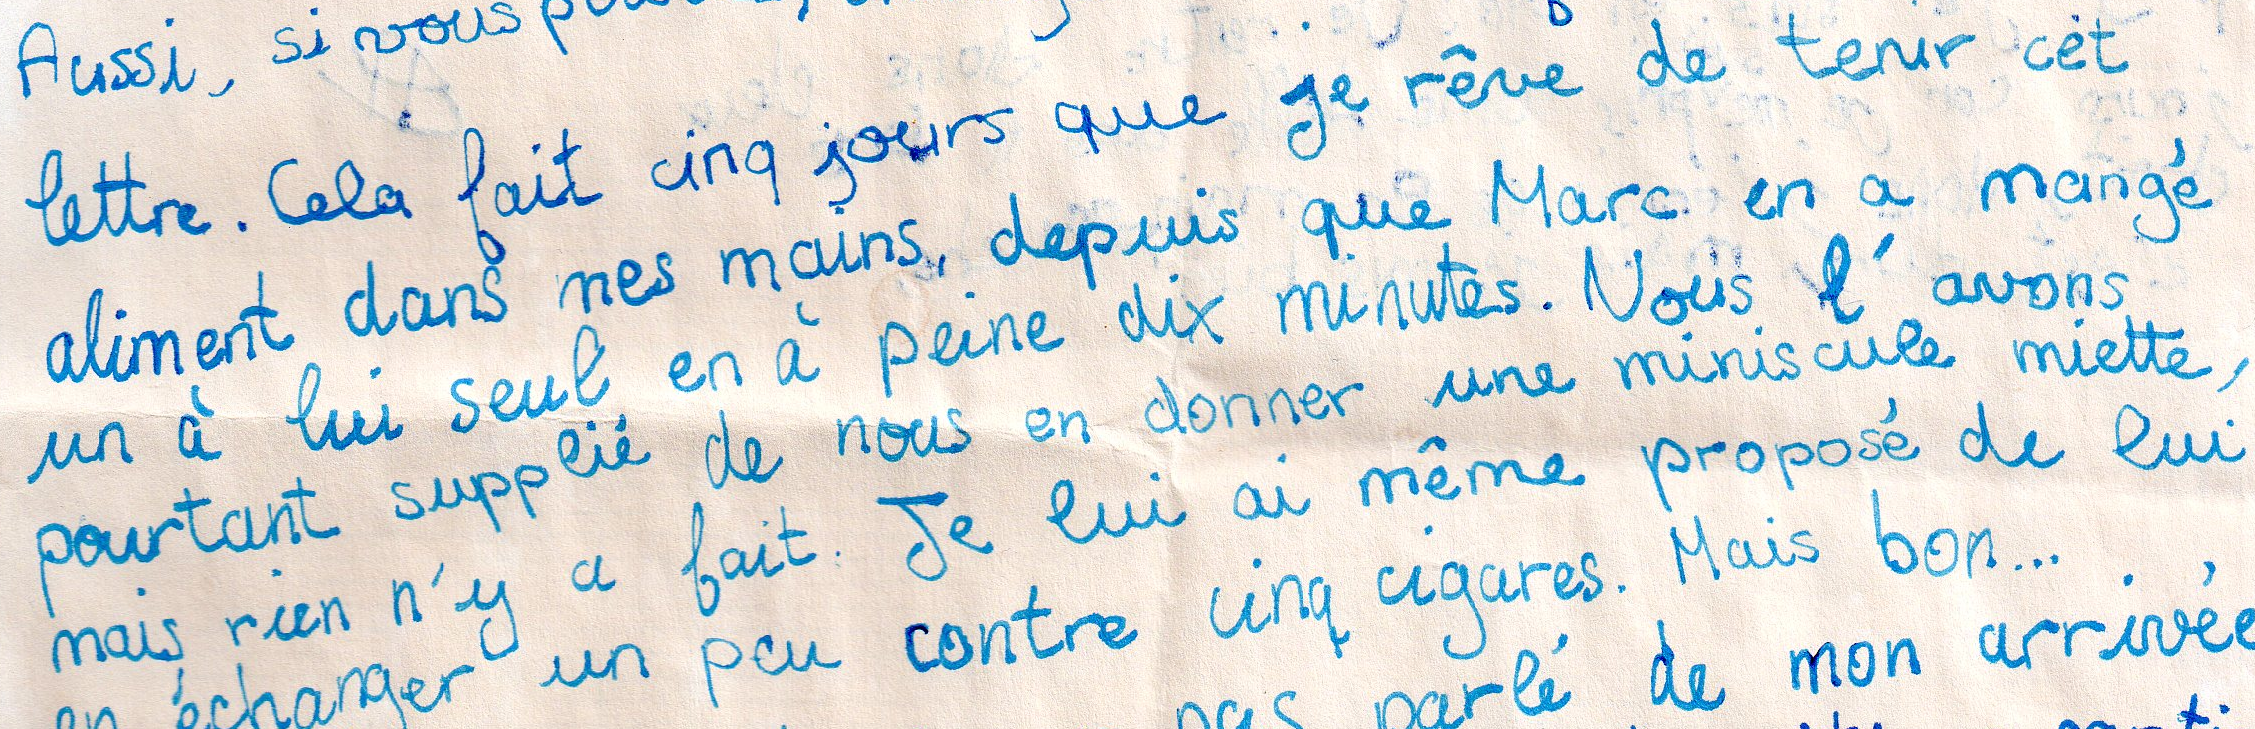 Aussi, si vous
lettre. Cela fait cinq jours que je rêve de tenir cet
aliment dans mes mains, depuis que Marc en a mangé
un à lui seul en à peine dix minutes. Nous l'avons
pourtant supplié de nous en donner une miniscule miette,
mais rien n'y a fait. Je lui ai même proposé de lui
en échanger un peu contre cinq cigares. Mais bon...
pas parlé de mon arrivée